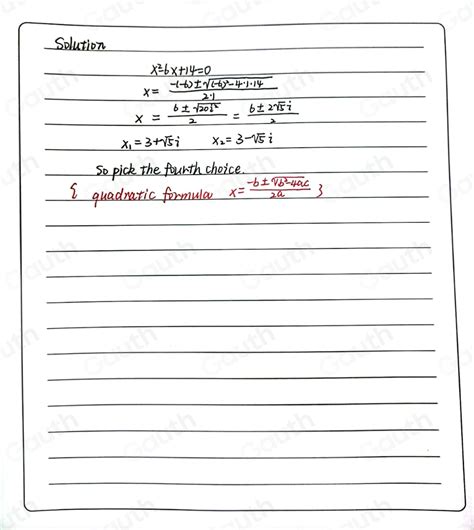 Solution
x²-6x+14=0
x = -(-6)±√(-6)²-4·1·14 / 2·1
x = 6±√20i² / 2 = 6±2√5i / 2
x₁=3+√5i x₂=3-√5i
So pick the fourth choice.
{ quadratic formula x= -b±√b²-4ac / 2a }